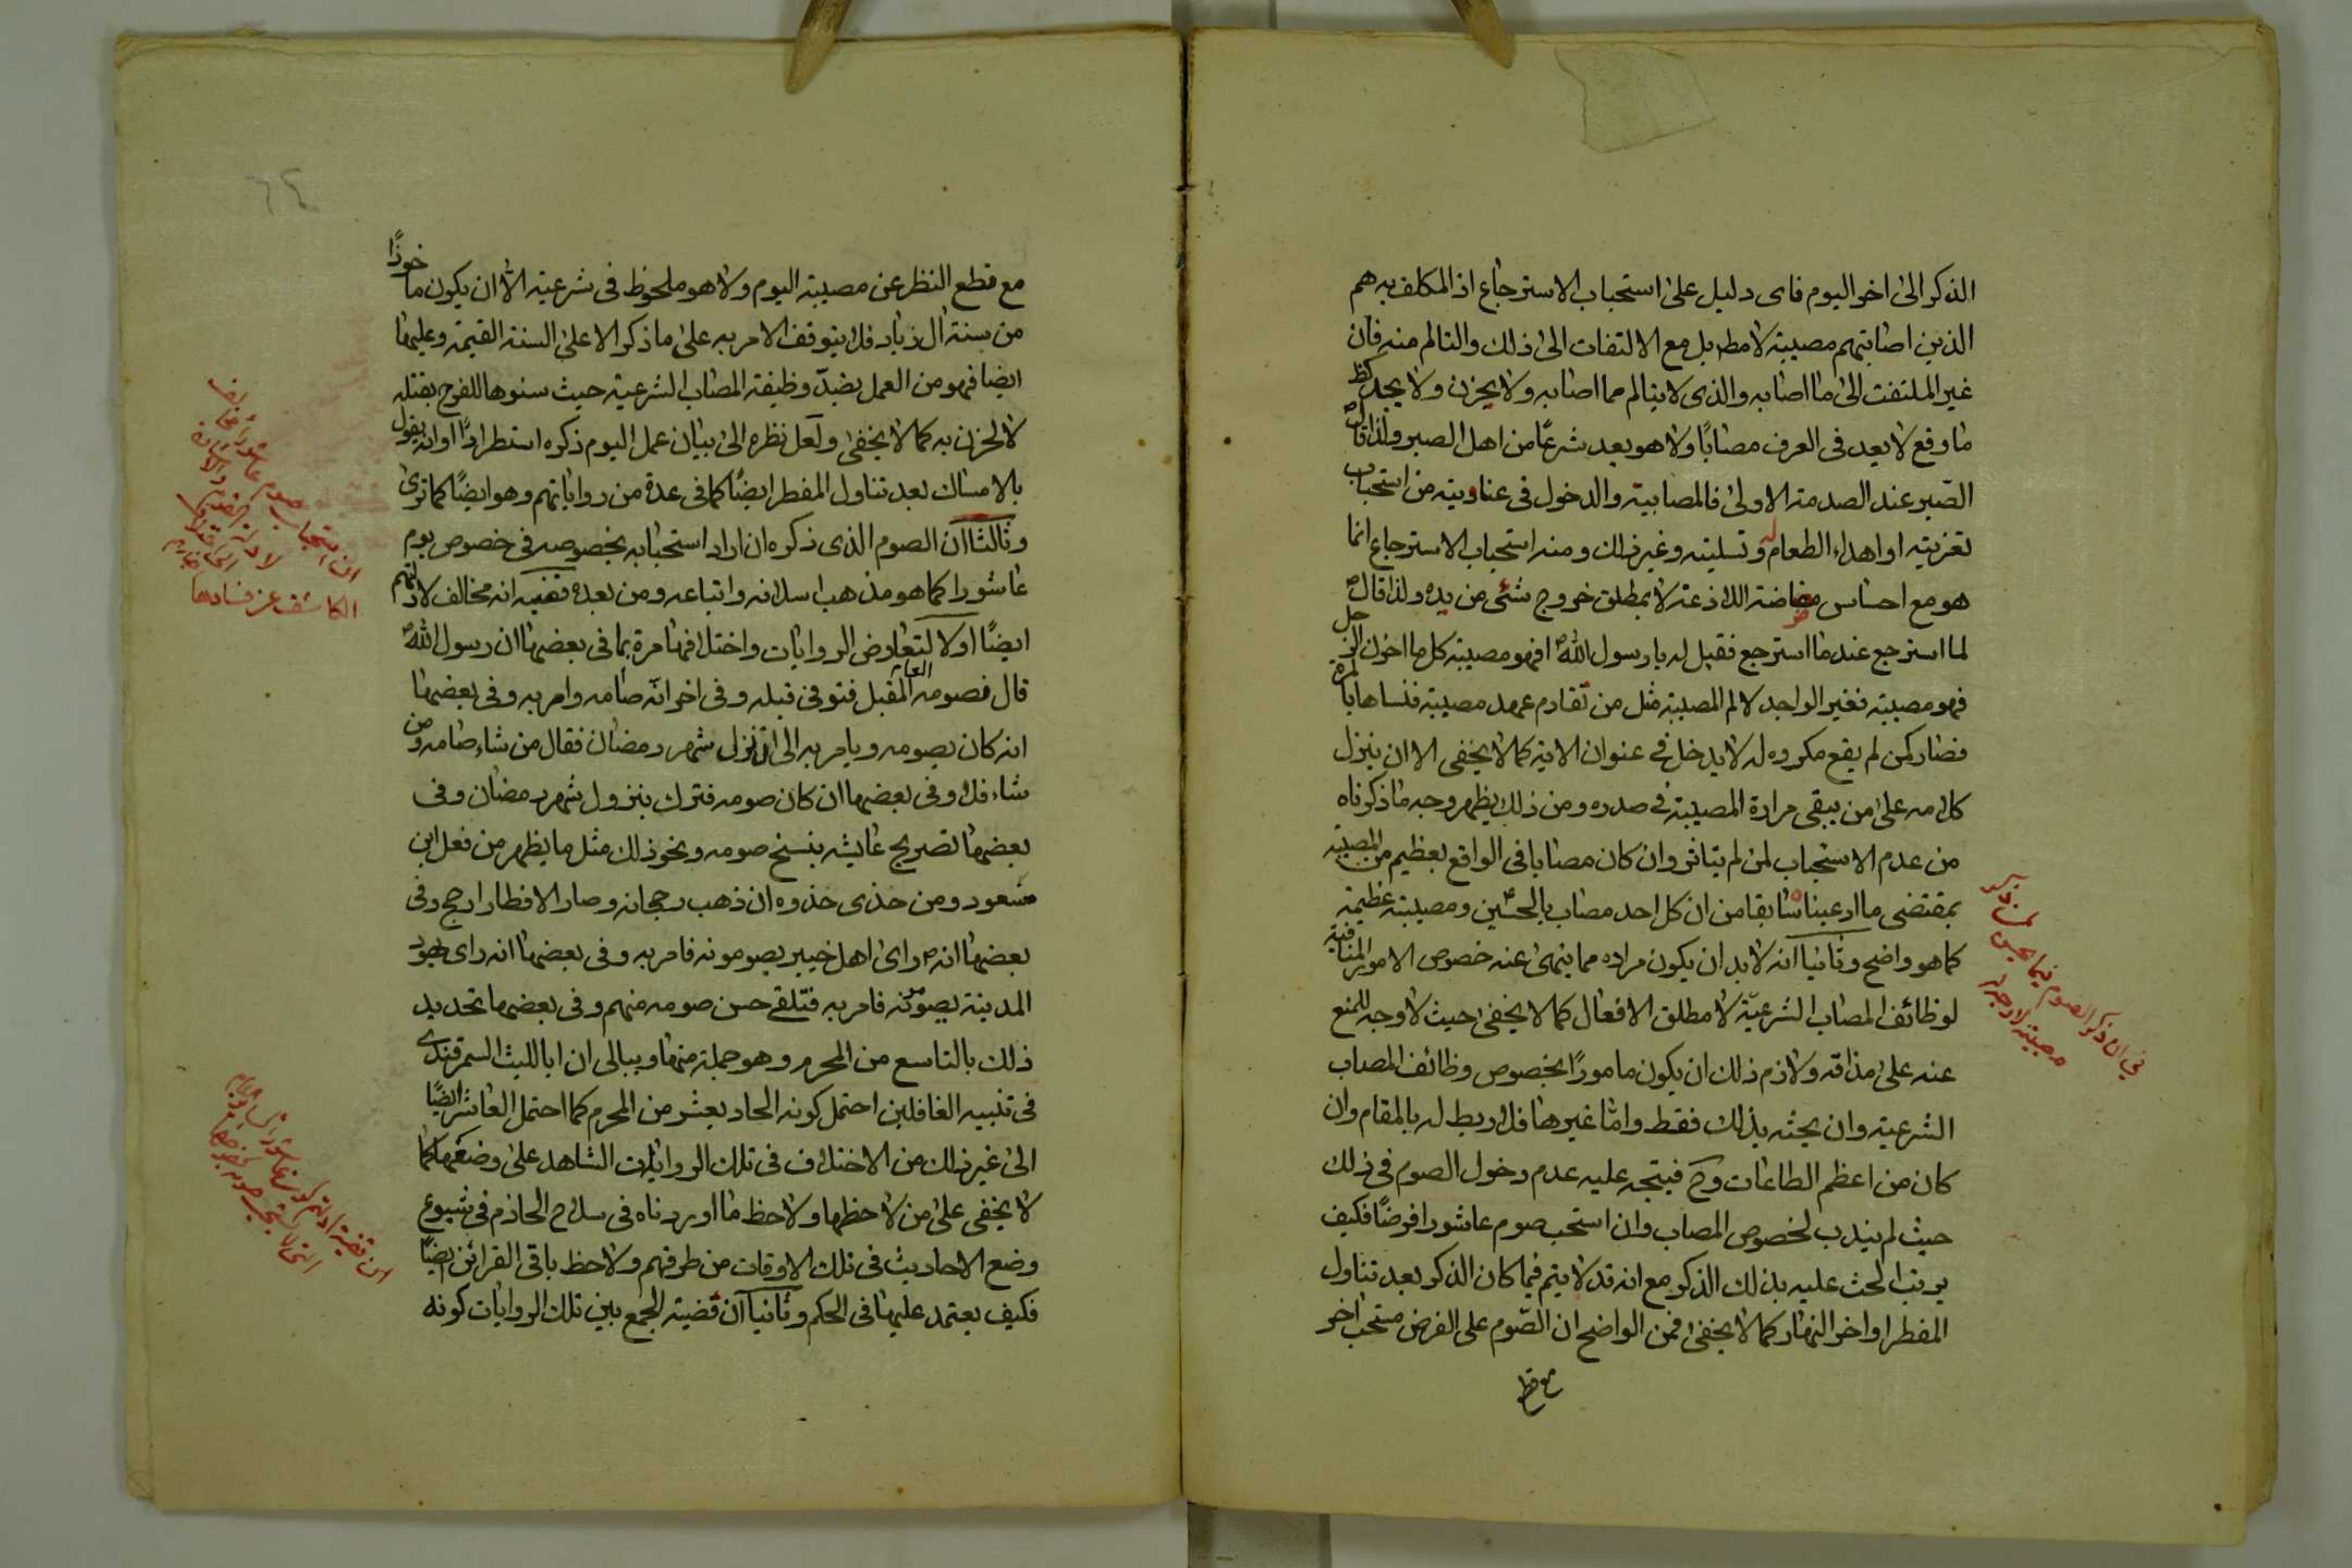 الذكر الى اخر اليوم فاى دليل على استحباب الاسترجاع اذ المكلف به هم
الذين اصابتهم مصيبة لا مطلقا بل مع الالتفات الى ذلك والتالم منه فان
غير الملتفت الى ما اصابه والذى لا يتالم مما اصابه ولا يحزن ولا يجد كظ
ما وقع لا يعد فى العرف مصابًا ولا هو يعد شرعًا من اهل الصبر ولذا قال
الصّبر عند الصدمة الاولى فالمصابية والدخول فى عناوينه من استحباب
تعزيته او اهداء الطعام له وتسليته وغير ذلك ومنه استحباب الاسترجاع انما
هو مع احساس مضاضة اللاذعة لا بمطلق خروج شئ من يده ولذا قال
لما استرجع عند ما استرجع فقيل له يا رسول الله افهو مصيبة كل ما احزن الرجل
فهو مصيبة فغير الواجد لالم المصيبة مثل من تقادم عهد مصيبة فنساها بالمرة
فصار كمن لم يقع مكروه له لا يدخل فى عنوان الاية كما لا يخفى الا ان ينزل
كلامه على من يبقى مرارة المصيبة فى صدره ومن ذلك يظهر وجه ما ذكرناه
من عدم الاستحباب لمن لم يتاثر وان كان مصابا فى الواقع بعظيم من المصيبة
بمقتضى ما ادعيناه سابقا من ان كل احد مصاب بالحسين ومصيبته عظيمة
كما هو واضح وثانيا انه لا بد ان يكون مراده مما ينهى عنه خصوص الامور المنافية
لوظائف المصاب الشرعيّة لا مطلق الافعال كما لا يخفى حيث لا وجه للمنع
عنه على مذاقه ولازم ذلك ان يكون مامورًا بخصوص وظائف المصاب
الشرعية وان يحثه بذلك فقط واما غيرها فلا ربط له بالمقام وان
كان من اعظم الطاعات وح فيتجه عليه عدم دخول الصوم فى ذلك
حيث لم يندب لخصوص المصاب وان استحب صوم عاشورا فرضًا فكيف
يرتب الحث عليه بذلك الذكر مع انه قد لا يتم فيما كان الذكر بعد تناول
المفطر او اخر النهار كما لا يخفى فمن الواضح ان الصّوم على الفرض مستحب اخر
مع قطع
فى ان ذكر الصوم فيما
مصيبة لا وجه له
مع قطع النظر عن مصيبة اليوم ولا هو ملحوظ فى شرعيته الا ان يكون ماخوذًا
من سنة ال زياد فلا يتوقف الامر به على ما ذكر الا على السنة القيمة وعليها
ايضا فهو من العمل بضدّ وظيفة المصاب الشرعية حيث سنوها للفرح بقتله
لا لحزن به كما لا يخفى ولعل نظره الى بيان عمل اليوم ذكره استطرادًا او انه يقول
بالامساك بعد تناول المفطر ايضًا كما فى عدة من رواياتهم وهو ايضًا كما ترى
وثالثا ان الصوم الذى ذكره ان اراد استحبابه بخصوصه فى خصوص يوم
عاشورا كما هو مذهب اسلافه واتباعه ومن بعده ففيه انه مخالف لادلتهم
ايضًا اولا لتعارض الروايات واختلافها مرة بما فى بعضها ان رسول الله
قال فصومه العام المقبل فتوفى قبله وفى اخر انّه صامه وامر به وفى بعضها
انه كان يصومه ويامر به الى ان نزل شهر رمضان فقال من شاء صامه ومن
شاء فلا وفى بعضها ان كان صومه فترك بنزول شهر رمضان وفى
بعضها تصريح عايشه بنسخ صومه ونحو ذلك مثل ما يظهر من فعل ابن
مسعود ومن حذى حذوه ان ذهب رجحانه وصار الافطار ارجح وفى
بعضها انه راى اهل خيبر يصومونه فامر به وفى بعضها انه راى يهود
المدينة يصومونه فامر به فتلقى حسن صومه منهم وفى بعضها تحديد
ذلك بالتاسع من المحرم وهو جملة منها وببالى ان ابا الليث السمرقندى
فى تنبيه الغافلين احتمل كونه الحاد يعشر من المحرم كما احتمل العاشر ايضًا
الى غير ذلك من الاختلاف فى تلك الروايات الشاهد على وضعها كما
لا يخفى على من لاحظها ولاحظ ما اوردناه فى سلاح الحازم فى شيوع
وضع الاحاديث فى تلك الاوقات من طرفهم ولاحظ باقى القرائن ايضًا
فكيف يعتمد عليها فى الحكم وثانيا ان قضية الجمع بين تلك الروايات كونه
ان استحباب صوم عاشورا
الكاشف عن فسادها
٦٤